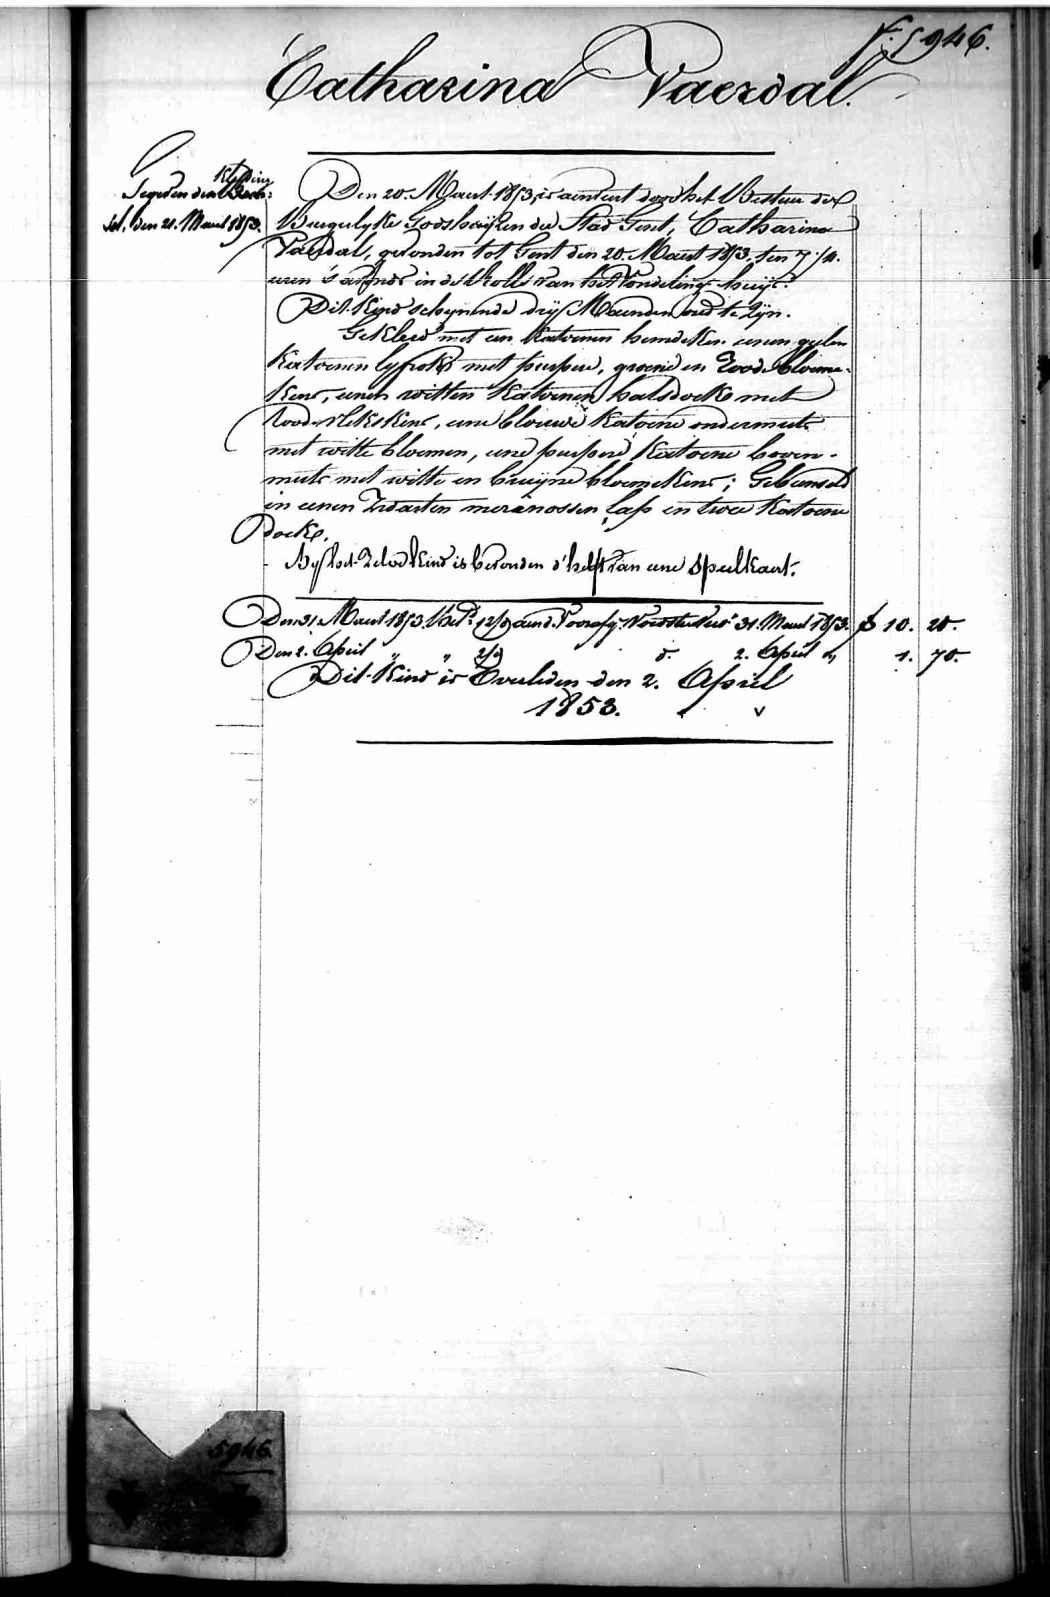 f: 5946.
Catharina Vaerdal.
Kleding
Gegeven den
sel, den 21. Maert 1853.
Den 20. Maert 1853, is aenveert door het Bestuer der
Burgerlyke Godshuijzen der Stad Gent, Catharina
Vaerdal, gevonden tot Gent den 20. Maert 1853. ten 7 1/4.
uren 's avonds in de Rolle van het Vondeling-huijs.
Dit Kind schynende drij Maenden oud te zijn.
Gekleed met een Katoenen hemdeken, eenen geelen
Katoenen lyfrok met purpere, groene en Roode bloeme-
kens, eenen witten Katoenen halsdoek met
Roode vlekskens, eene blouwe Katoene ondermuts
met witte bloemen, eene purpere Katoene boven-
muts met witte en bruijne bloemekens; Gebunseld
in eenen Zwarten merânossen lap en twee Katoene
doeke.
By het Zelve Kind is bevonden d'helft van eene Speelkaert.
Den 31. Maert 1853. 12/9 31. Maert 1853. f 10. 20.
Den 2. April " " 2/9 d. 2. April " 1. 70.
Dit Kind is Overleden den 2. April
1853.
5946